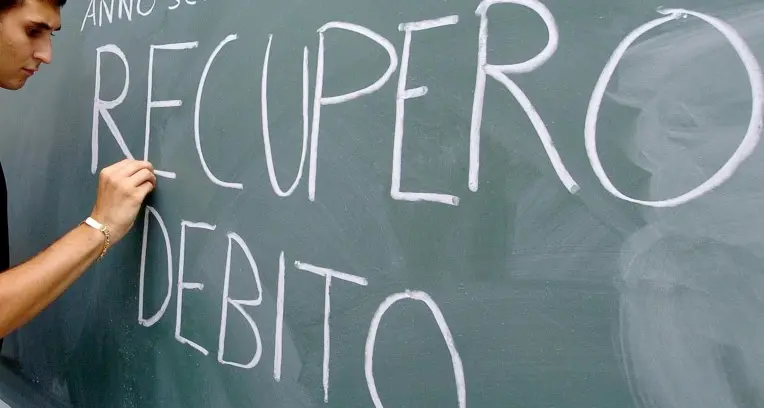 ANNO
RECUPERO
DEBITO